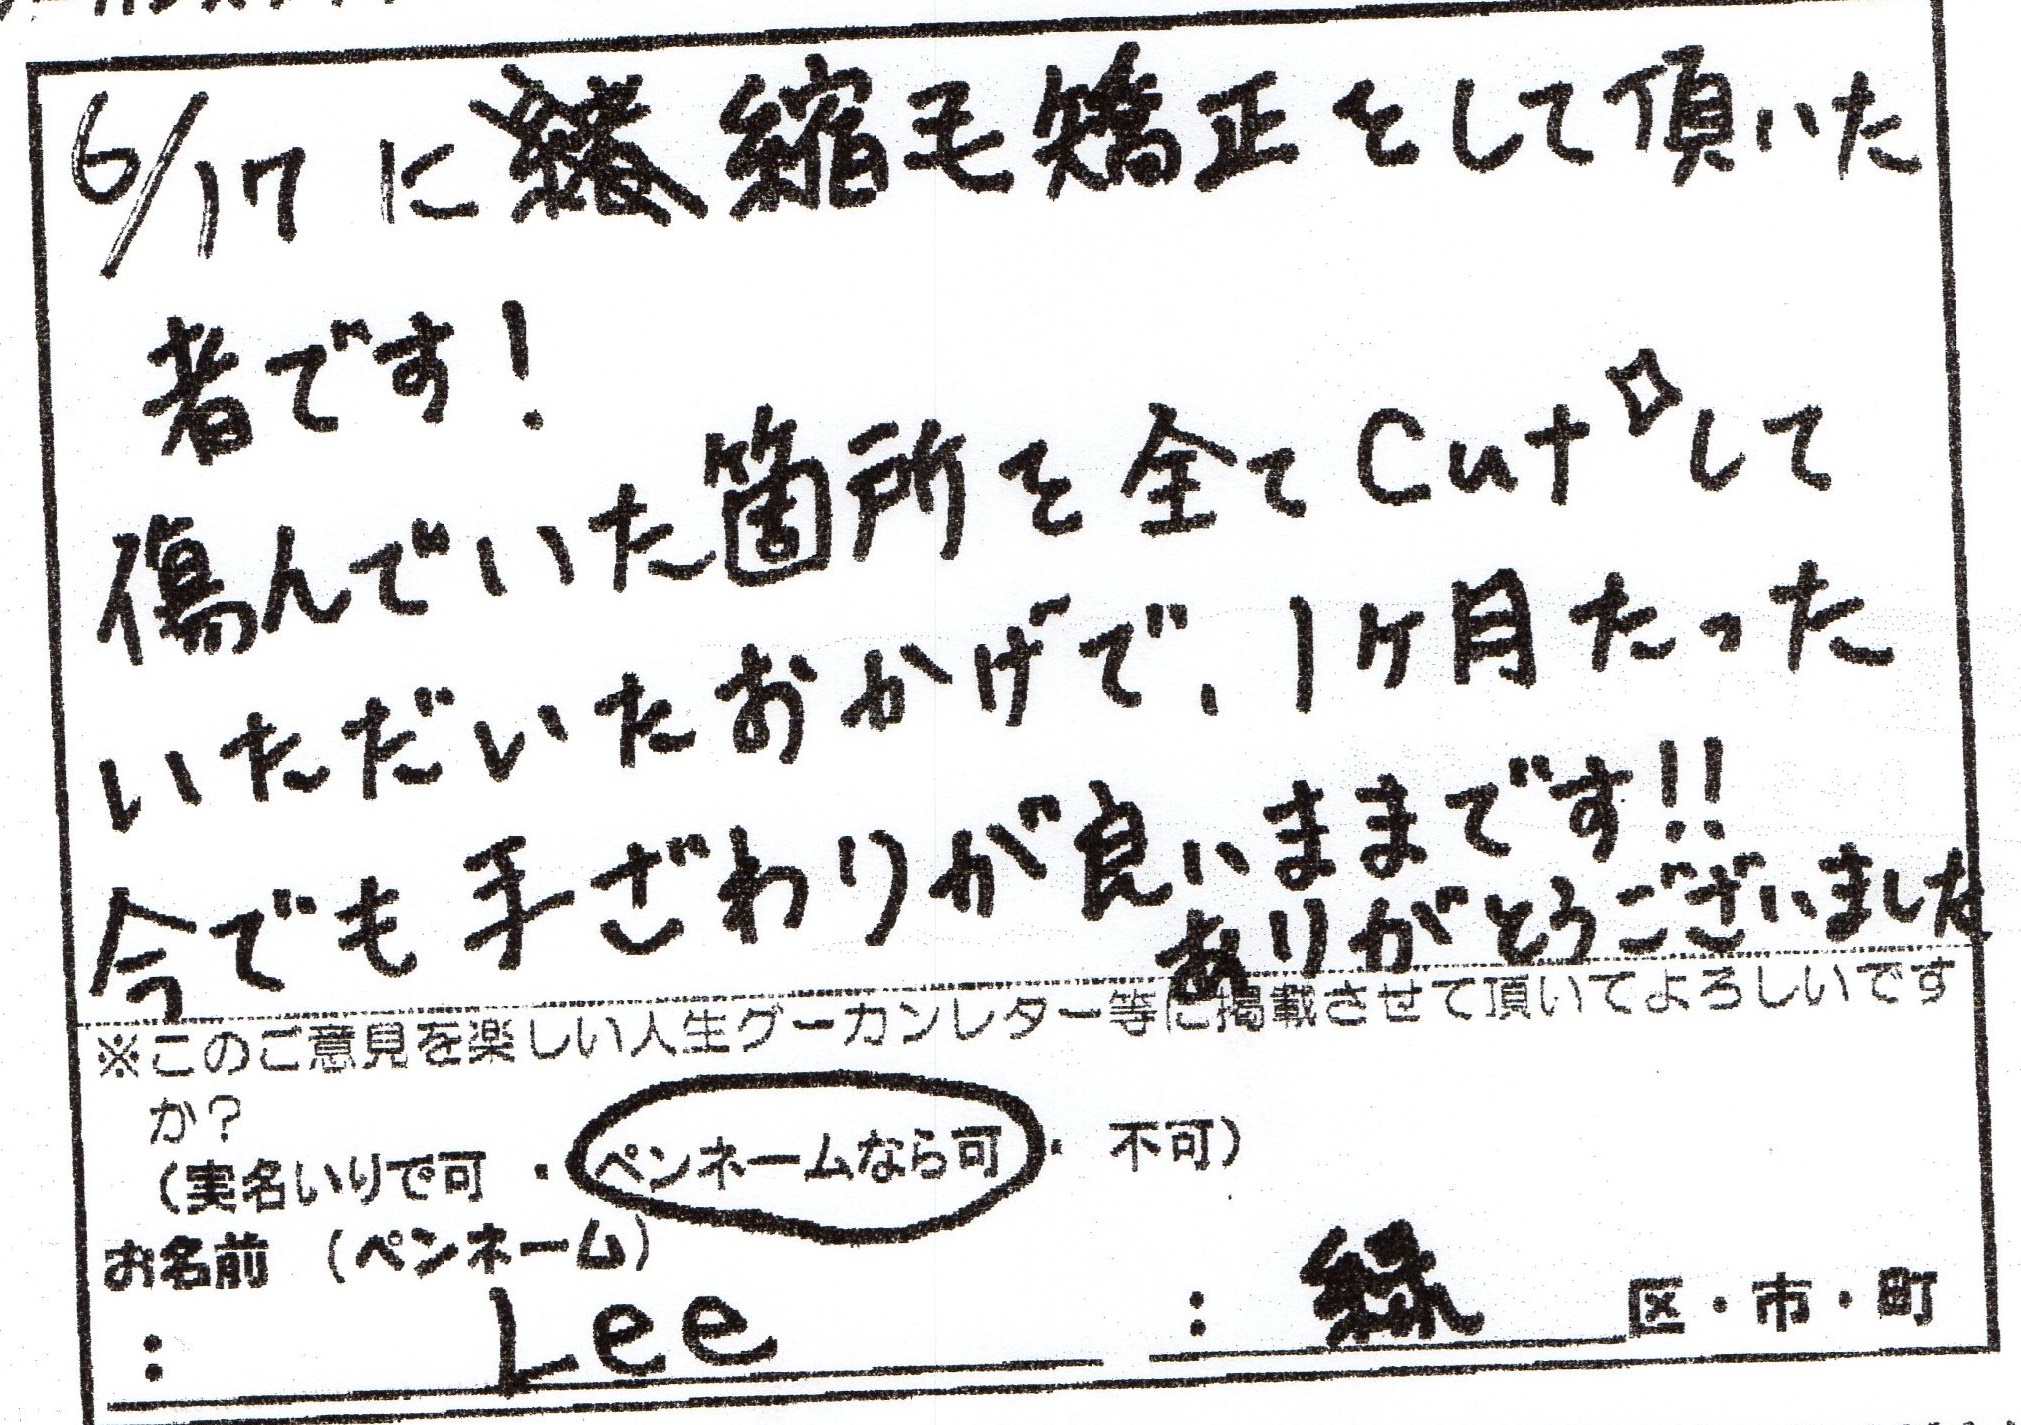 6/17に縮毛矯正をして頂いた
者です!
傷んでいた箇所を全てCutして
いただいたおかげで、1ヶ月たった
今でも手ざわりが良いままです!!
ありがとうございました
※このご意見を楽しい人生グーカンレター等に掲載させて頂いてよろしいです
か?
(実名いりで可 ・ ペンネームなら可 ・ 不可)
お名前 (ペンネーム)
: Lee : 緑 区・市・町